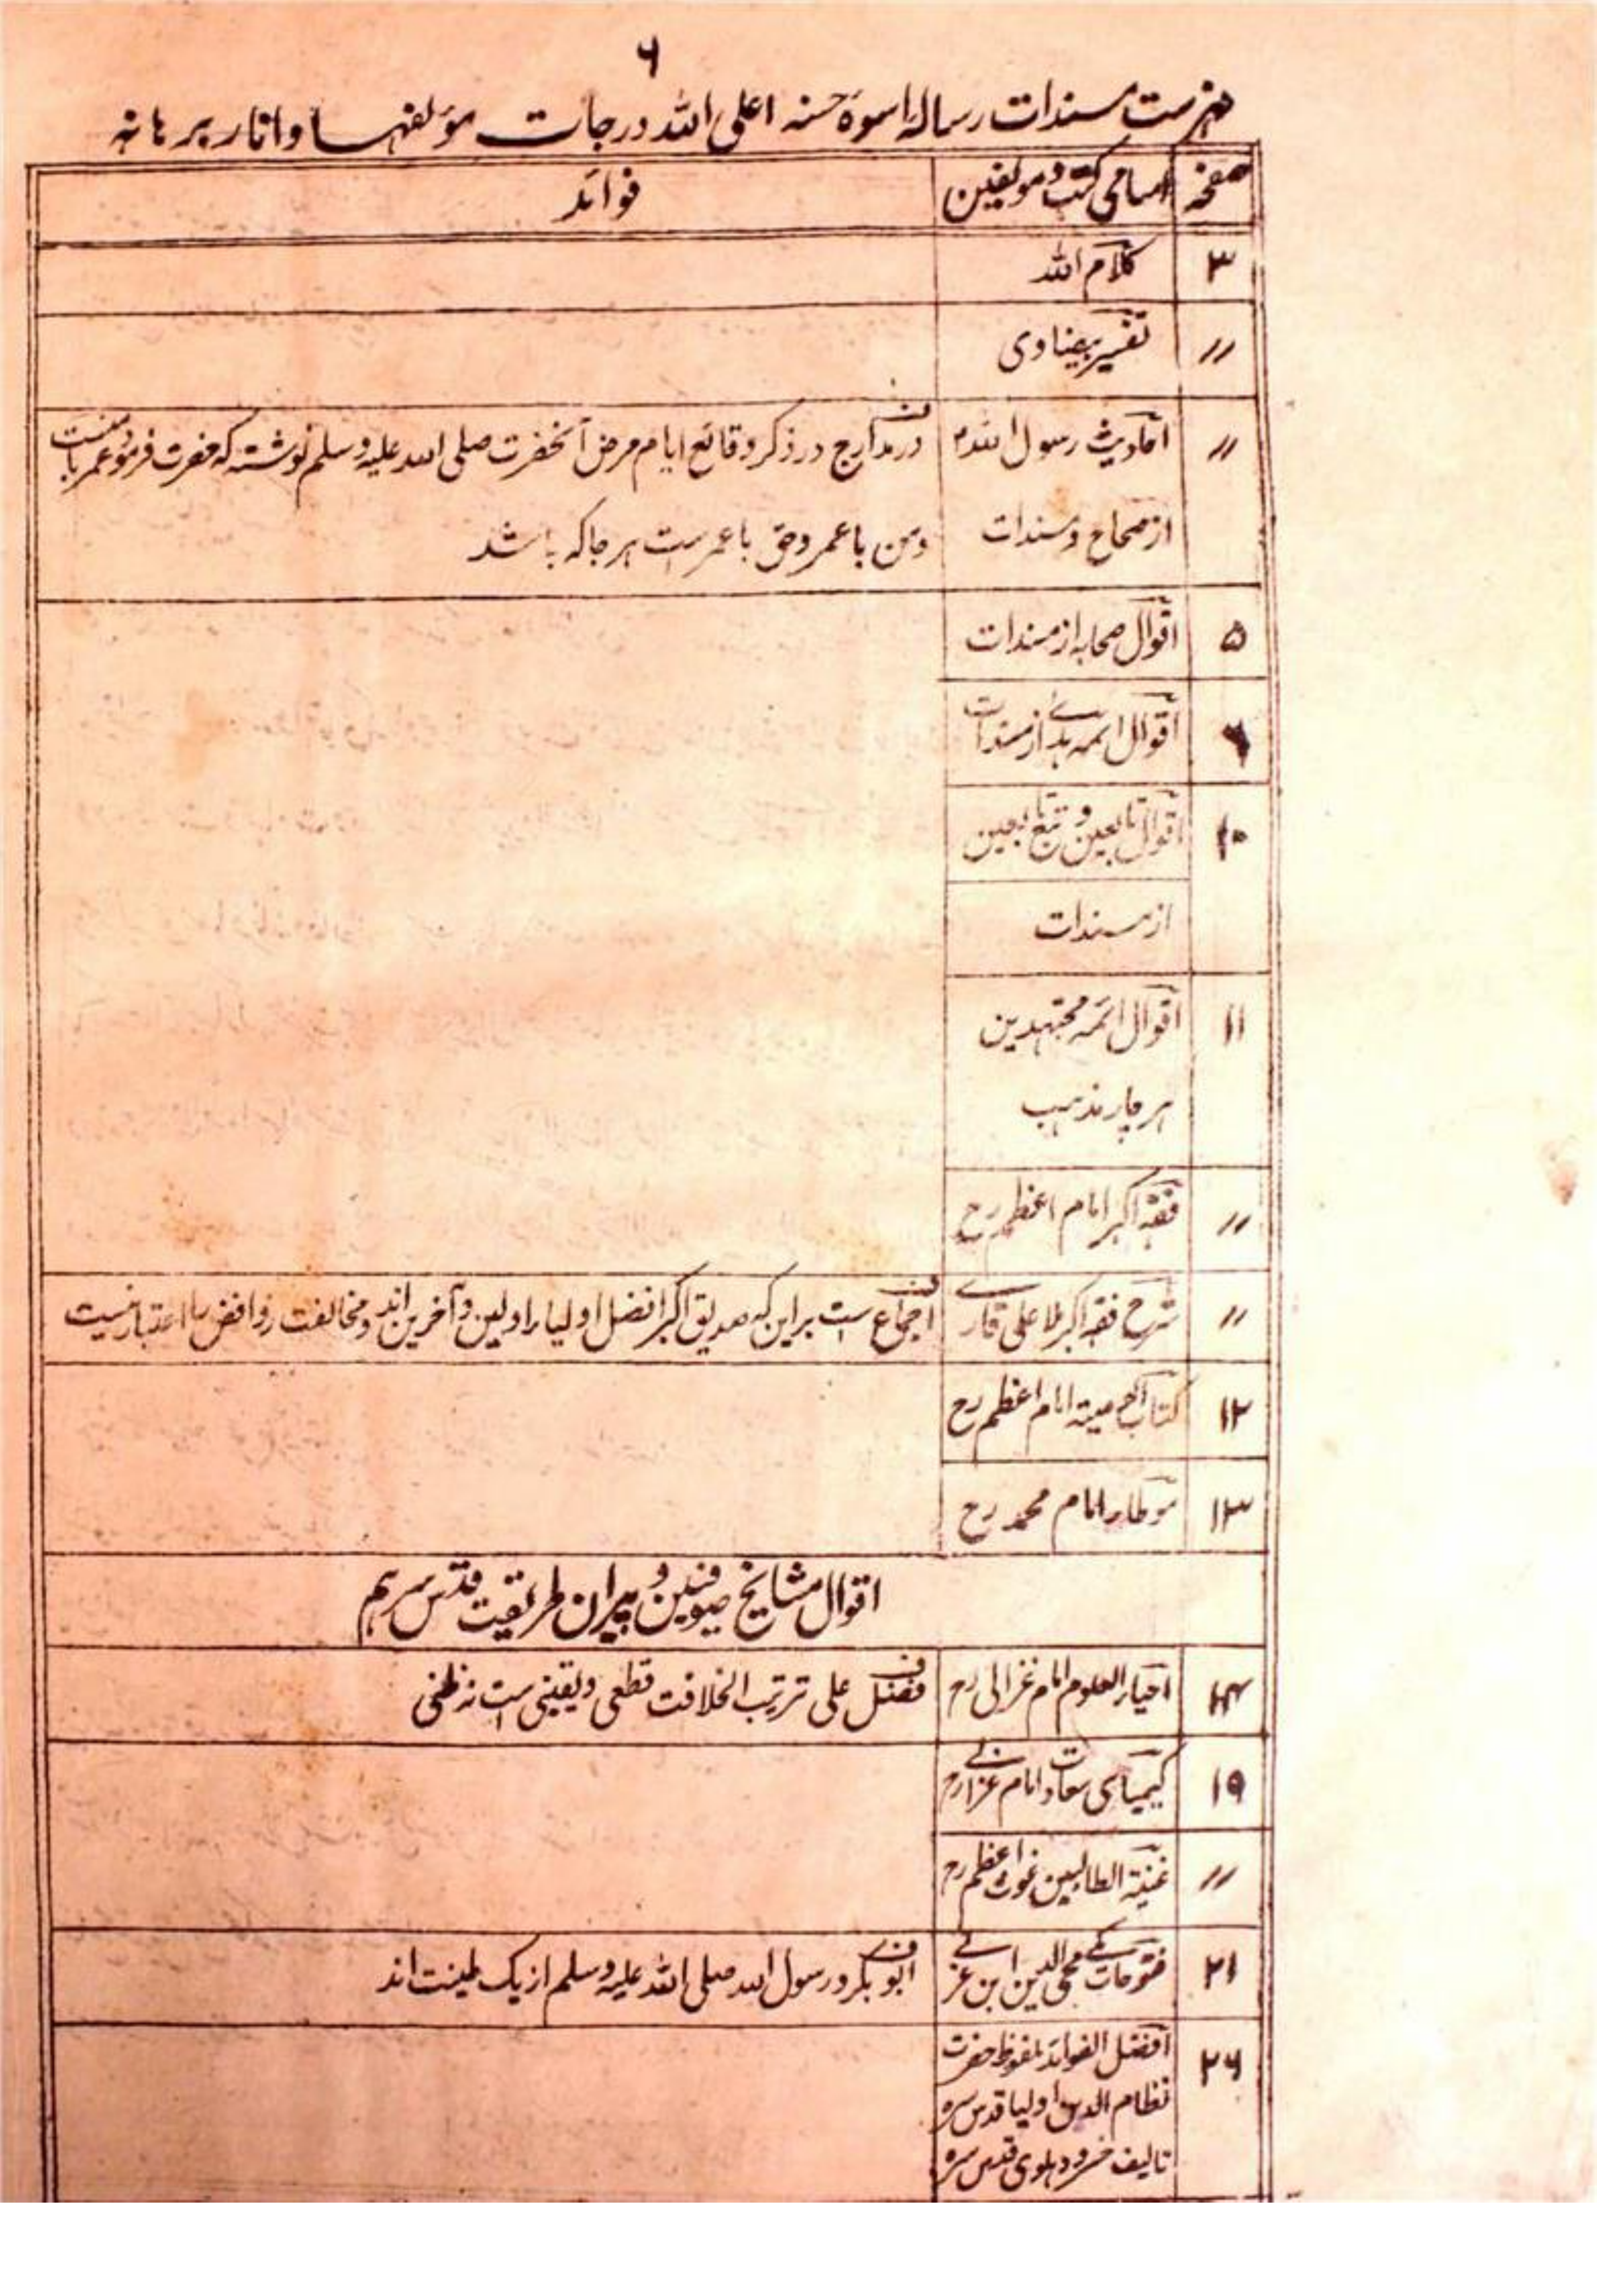 ۶
فہرست مسندات رسالہ اسوۂ حسنہ اعلی اللہ درجات مؤلفہا و انار برہانہ
صفحہ اسامی کتب و مولفین فوائد
۳ کلام اللہ
〃 تفسیر بیضاوی
〃 احادیث رسول اللہ در مدارج در ذکر وقائع ایام مرض آنحضرت صلی اللہ علیہ وسلم نوشتہ کہ حضرت فرمود عمر با منست
از صحاح و مسندات و من با عمر و حق با عمر ست ہر جا کہ باشد
۵ اقوال صحابہ از مسندات
۹ اقوال ائمہ ہدے از مسندات
۱۰ اقوال تابعین و تبع تابعین
از مسندات
۱۱ اقوال ائمہ مجتہدین
ہر چار مذہب
〃 فقہ اکبر امام اعظم رح
〃 شرح فقہ اکبر ملا علی قارے ف اجماع ست براین کہ صدیق اکبر افضل اولیاء اولین و آخرین اند و مخالفت روافض را اعتبار نیست
۱۲ کتاب الوصیۃ امام اعظم رح
۱۳ موطاء امام محمد رح
اقوال مشایخ صوفیین و پیران طریقت قدس سرہم
۱۴ احیاء العلوم امام غزالی رح ف فضل علی ترتیب الخلافت قطعی و یقینی ست نہ ظنی
۱۹ کیمیای سعادت امام غزالے رح
〃 غنیۃ الطالبین غوث اعظم رح
۲۱ فتوحات مکے محی الدین ابن عربے ف ابو بکر و رسول اللہ صلی اللہ علیہ وسلم از یک طینت اند
۲۶ افضل الفوائد ملفوظ حضرت
نظام الدین اولیا قدس سرہ
تالیف خسرو دہلوی قدس سرہ